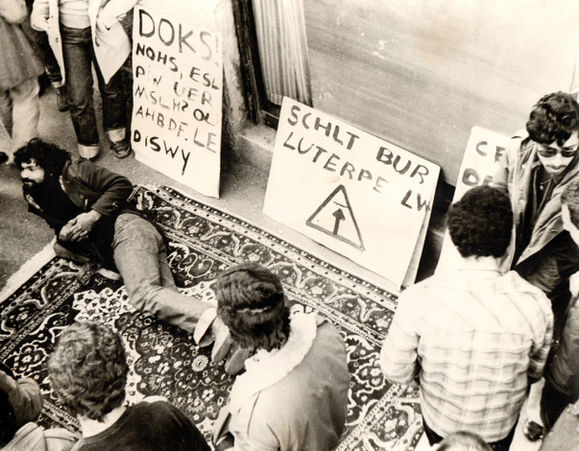 DOKS
NOHS, ESL
UER
AHBDF.LE
DISWY
SCHLT BUR
LUTERPE LW
CE
DE